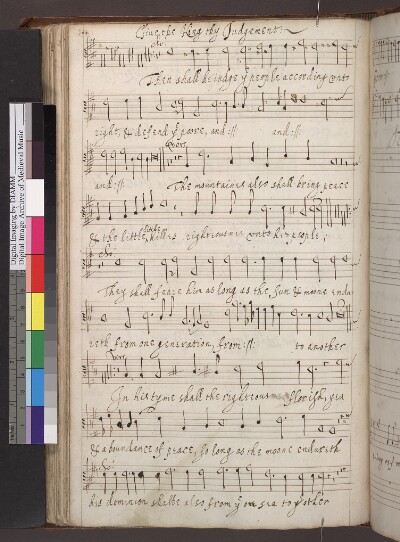 Giue the King thy Judgement:
Cho:
Then shall he iudge yͤ people according vnto
right, & defend yͤ poore, and :||: and :||:
and :||: The mountaines also shall bring peace
& the little hills righteousnes vnto his people,
Cho:
They shall feare him as long as the sun & moone endu
reth from one generation, from :||: to another
In his tyme shall the righteous florish, yea
& abundance of peace, so long as the moone endureth
Cho:
his dominion shalbe also from yͤ one sea to yͤ other
Digital Imaging by DIAMM
Digital Image Archive of Medieval Music